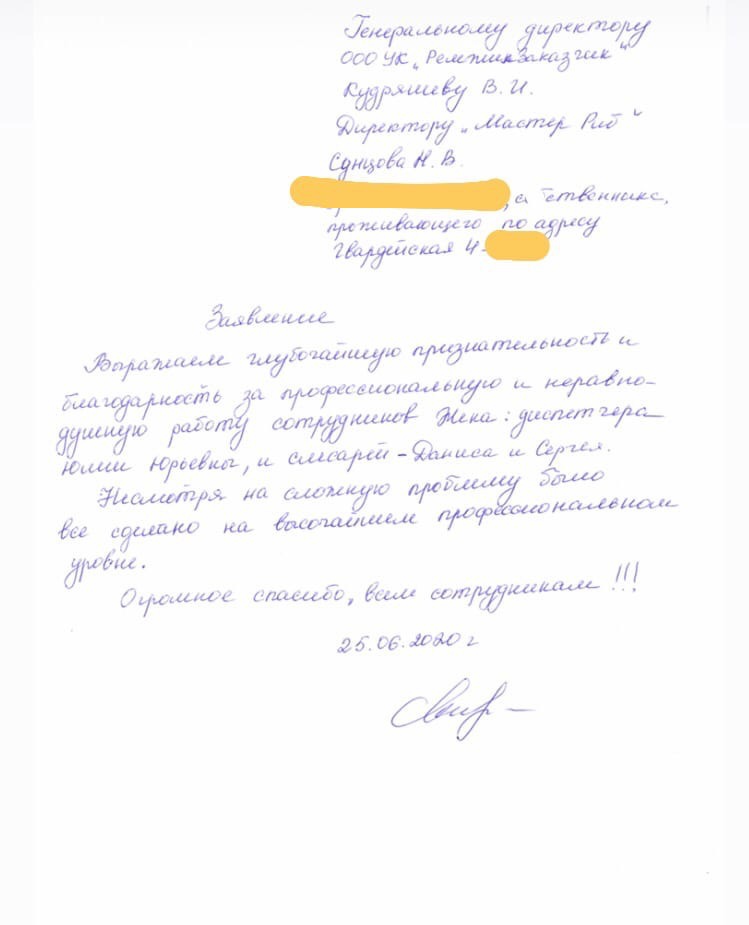 Генеральному директору
ООО УК „Ремжилзаказчик"
Кудряшеву В. И.
Директору „Мастер Риб"
Сунцова Н. В.
проживающего по адресу
Гвардейская 4-
Заявление
Выражаем глубочайшую признательность и
благодарность за профессиональную и неравно-
душную работу сотрудников Жека: диспетчера
Юлии Юрьевны, и слесарей - Даниса и Сергея.
Несмотря на сложную проблему было
все сделано на высочайшем профессиональном
уровне.
Огромное спасибо, всем сотрудникам !!!
25.06.2020 г